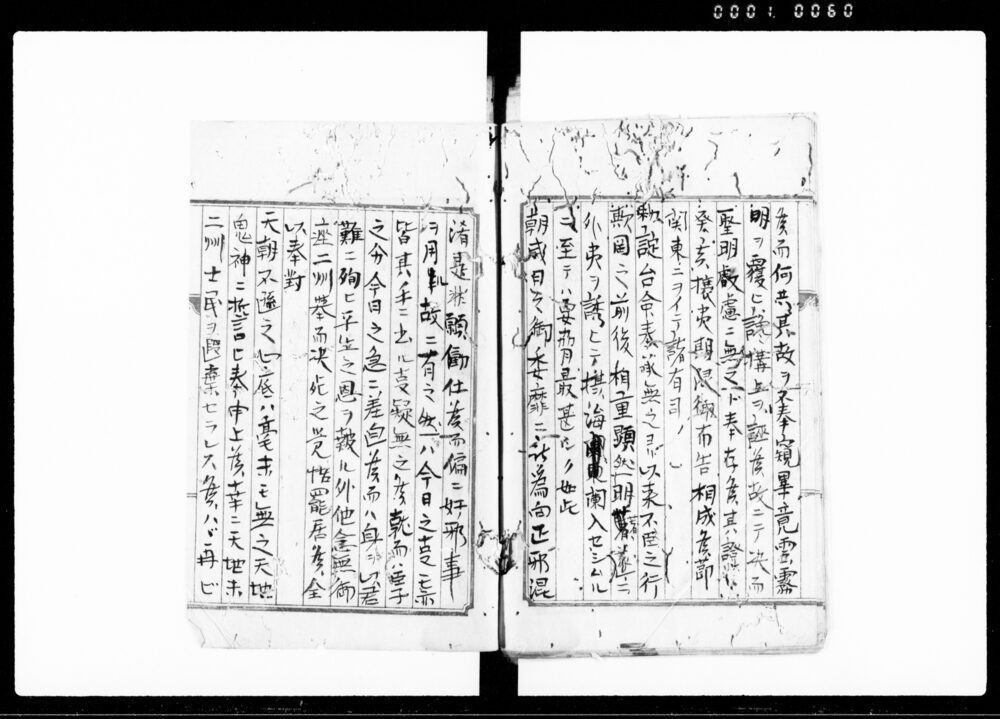 0001 0060
候而何共其故ヲ不奉窺畢竟雲霧
明ヲ覆ヒ讒構上ヲ誣候故ニテ决而
聖明叡慮ニ無之ト奉存候其證ハ
癸亥攘夷期限御布告相成候節
関東ニヲイテ諸有司ノ
勅諚台命奉承無之ノミ以来不臣之行
欺罔之前後相重顕然明著遂ニ
外夷ヲ誘ヒテ摂海闌入セシムル
ニ至テハ最甚シク如此
朝威日々御委靡ニ被為向正邪混
淆是非顛
ヲ用故ニ有之然ハ今日之事ニ
皆其手ニ出ル事疑無之候乾而
之分今日之急ニ差向候而ハ身ニ以君
難ニ殉ヒ平生之恩ヲ報ル外他念無御
座二州挙而决死之覚悟罷居候全
以奉對
天朝不遜之心底ハ毫末モ無之天地
鬼神ニ誓言ヒ奉申上候幸ニ天地未
二州士民ヲ棄セラレス候ハヾ再ビ